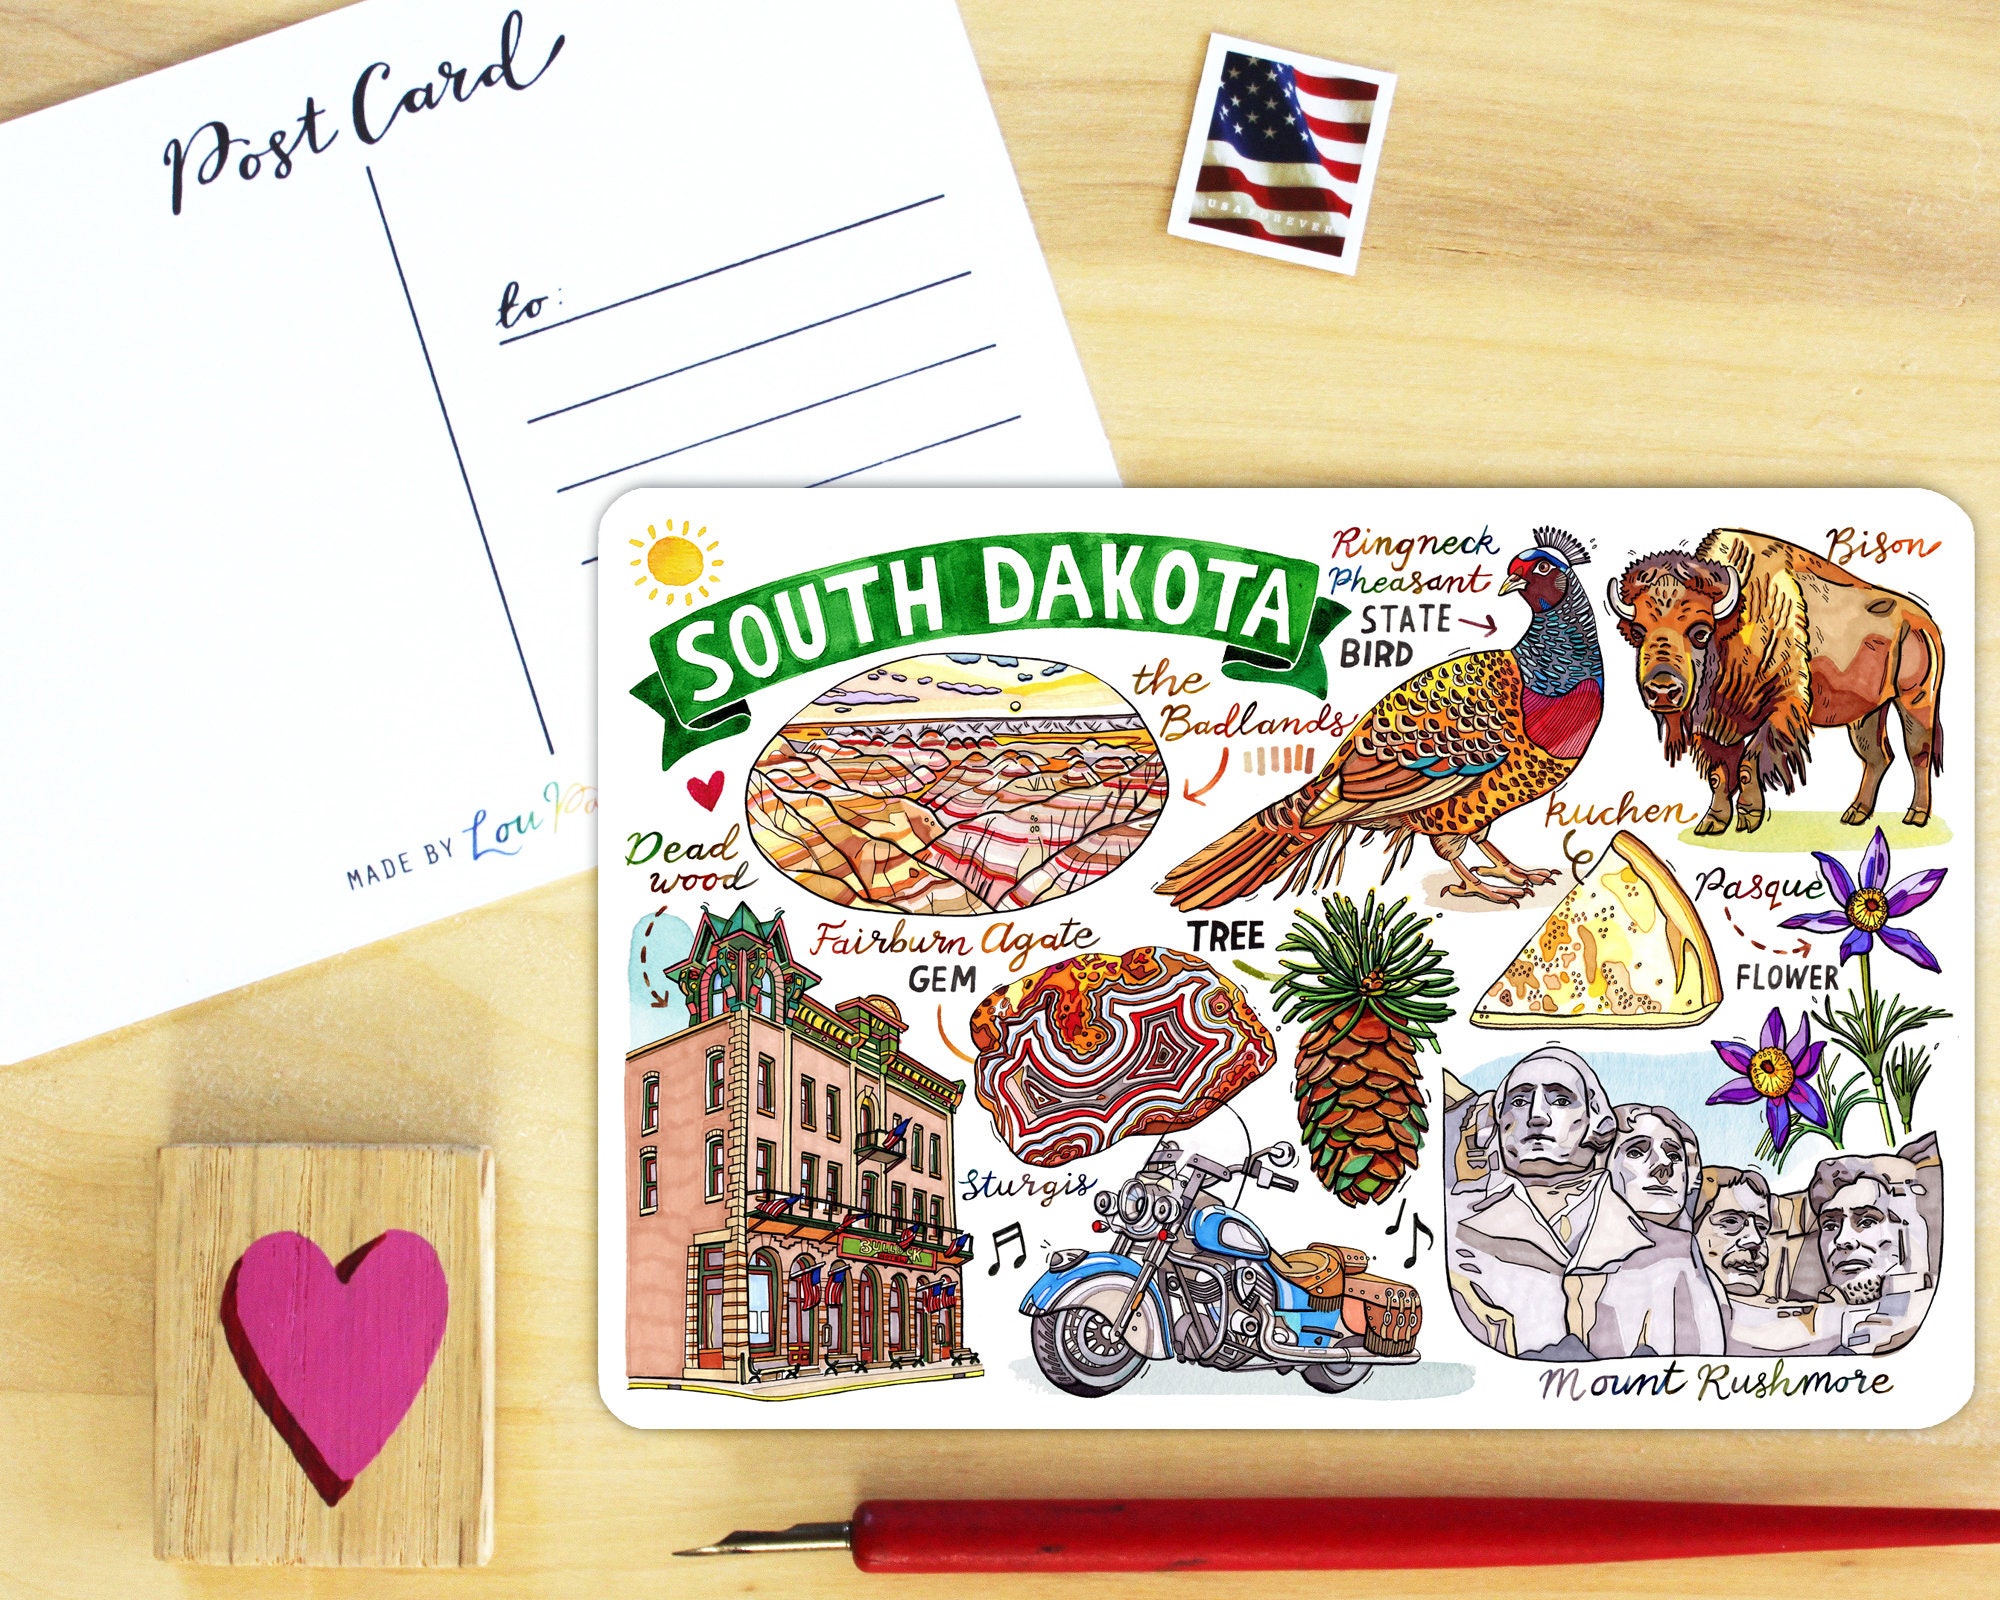 Post Card
to:
MADE BY Lou
USA FOREVER
SOUTH DAKOTA
Ringneck
Pheasant
STATE
BIRD
Bison
the
Badlands
kuchen
Dead
wood
Pasque
FLOWER
Fairburn Agate
GEM
TREE
Sturgis
BULLOCK
Mount Rushmore